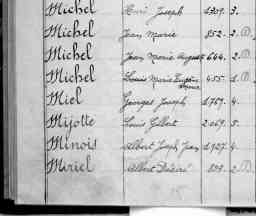 Michel Henri Joseph 1309. 3.
Michel Jean Marie 852. 2. (D)
Michel Jean Marie August 644. 2. (D)
Michel Louis Marie Eugène 455. 1. (D)
Miel Georges Joseph 1757. 4.
Mijotte Louis Gilbert 2069. 5.
Minois Albert Joseph Jean 1927. 4.
Miriel Albert Désiré 899. 2. (D)